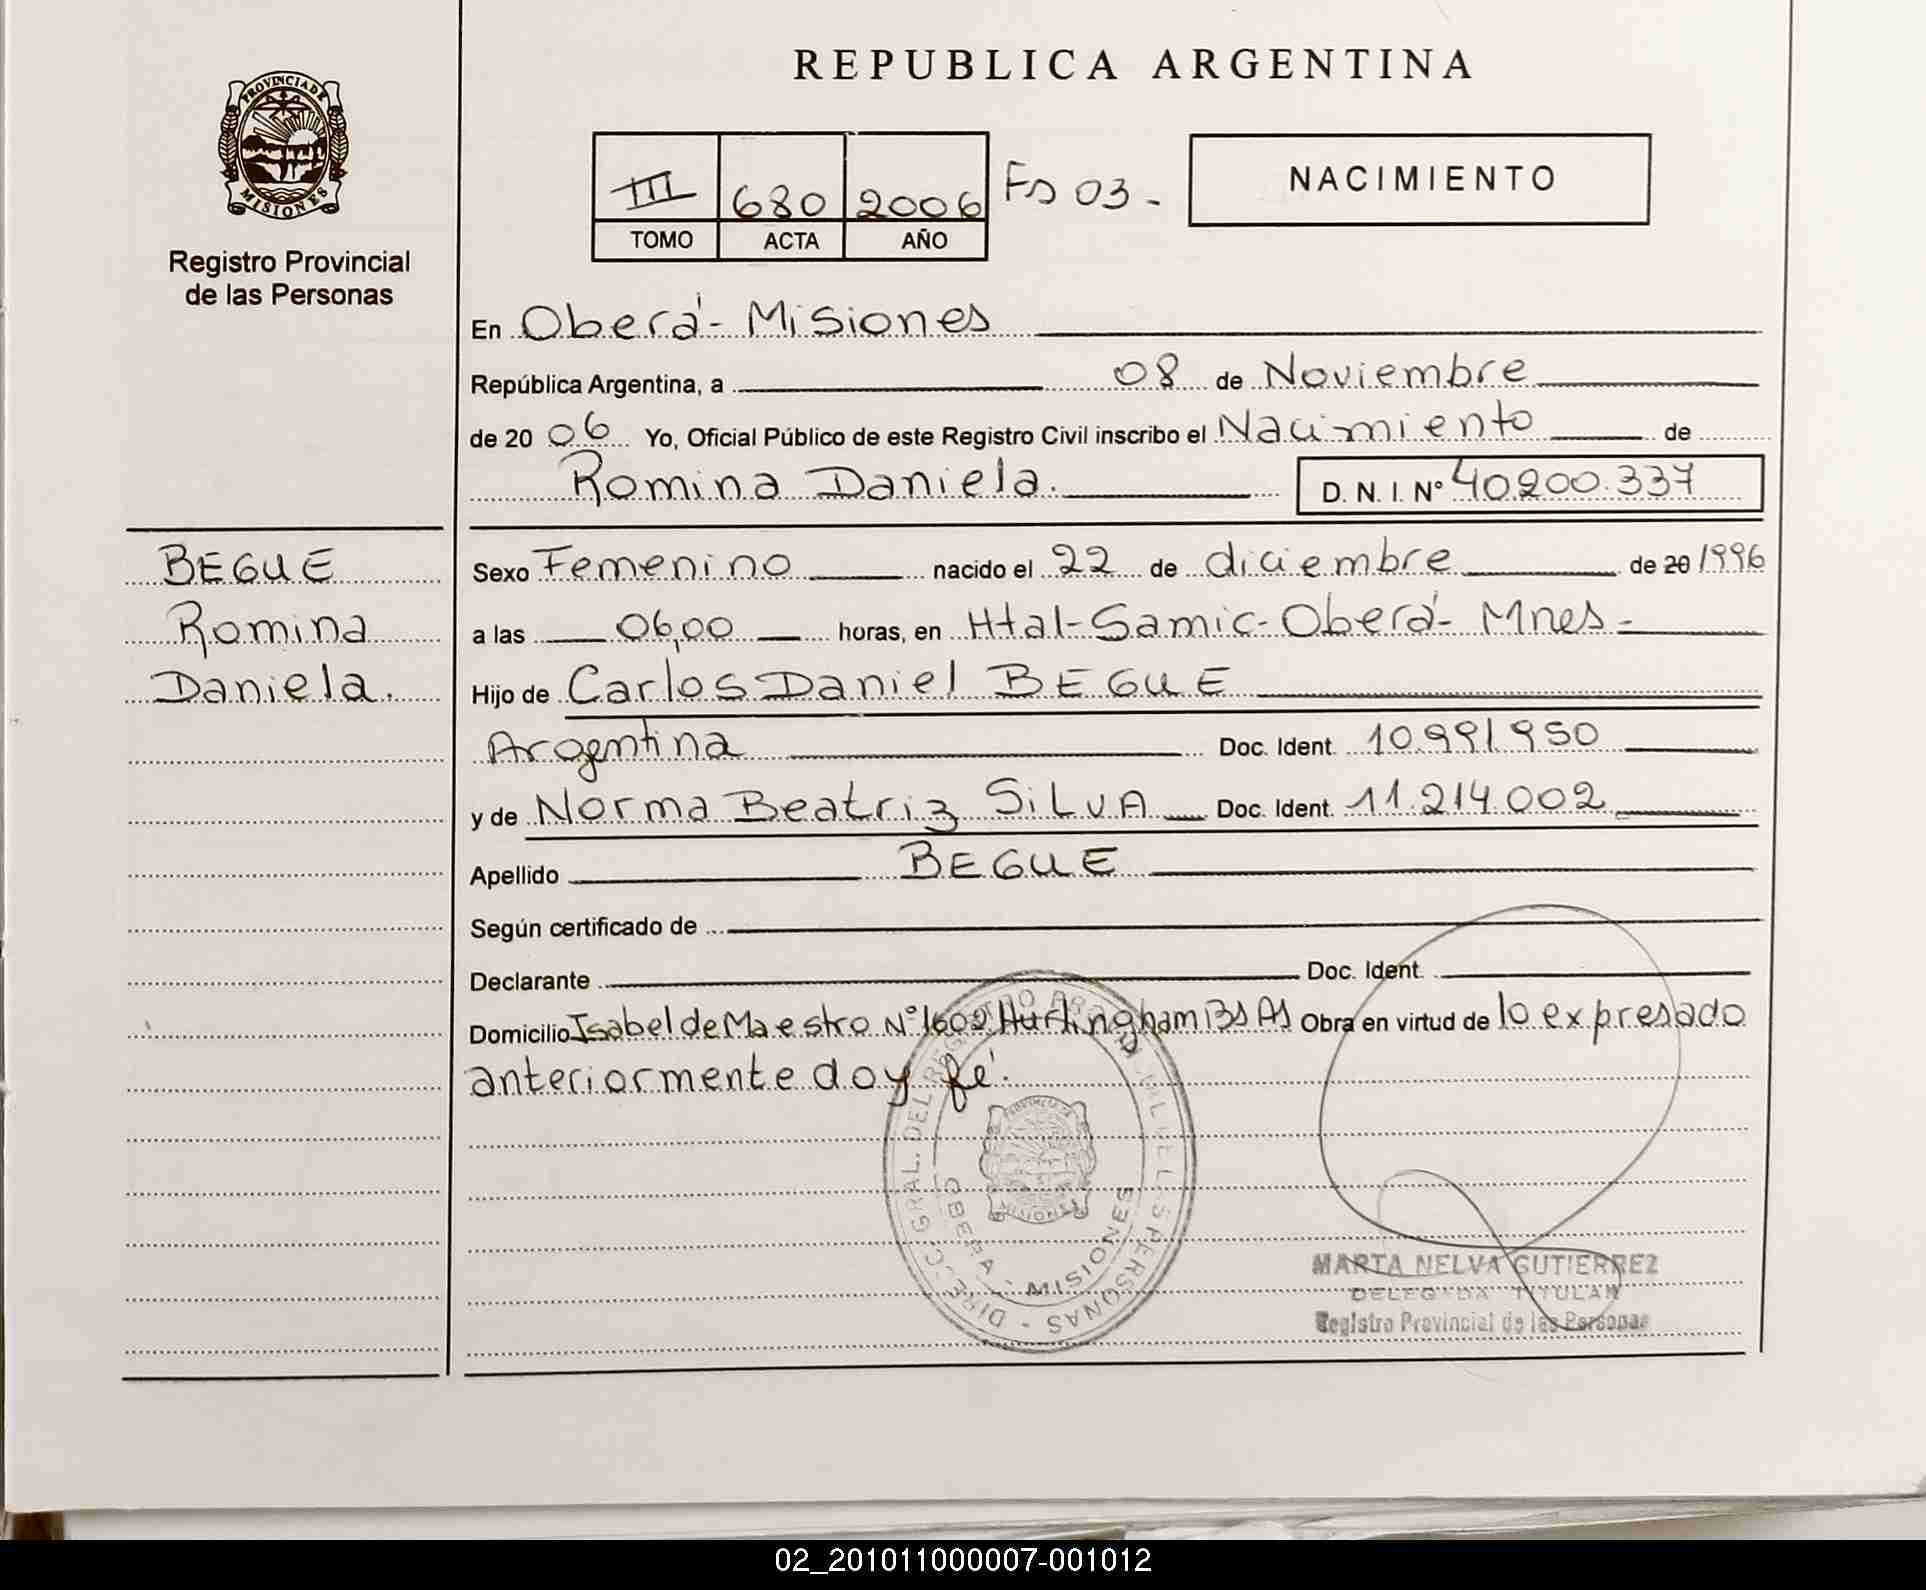 REPUBLICA ARGENTINA
PROVINCIA DE
MISIONES
Registro Provincial
de las Personas
III 680 2006 Fs 03.-
TOMO ACTA AÑO
NACIMIENTO
En Oberá - Misiones
República Argentina, a 08 de Noviembre
de 20 06 Yo, Oficial Público de este Registro Civil inscribo el Nacimiento de
Romina Daniela. D. N. I. Nº 40.200.337
BEGUE
Romina
Daniela.
Sexo Femenino nacido el 22 de diciembre de 20 1996
a las 06,00 horas, en Htal-Samic-Oberá- Mnes-
Hijo de Carlos Daniel BEGUE
Argentina Doc. Ident. 10.991.950
y de Norma Beatriz SiLVA Doc. Ident. 11.214.002
Apellido BEGUE
Según certificado de
Declarante Doc. Ident.
Domicilio Isabel de Maestro Nº 1602 Hurlingham Bs As Obra en virtud de lo expresado
anteriormente doy fé.
DIRECC. GRAL. DEL REGISTRO PERSONAS
OBERA - MISIONES
MISIONES
MARTA NELVA GUTIERREZ
DELEGADA TITULAR
Registro Provincial de las Personas
02_201011000007-001012